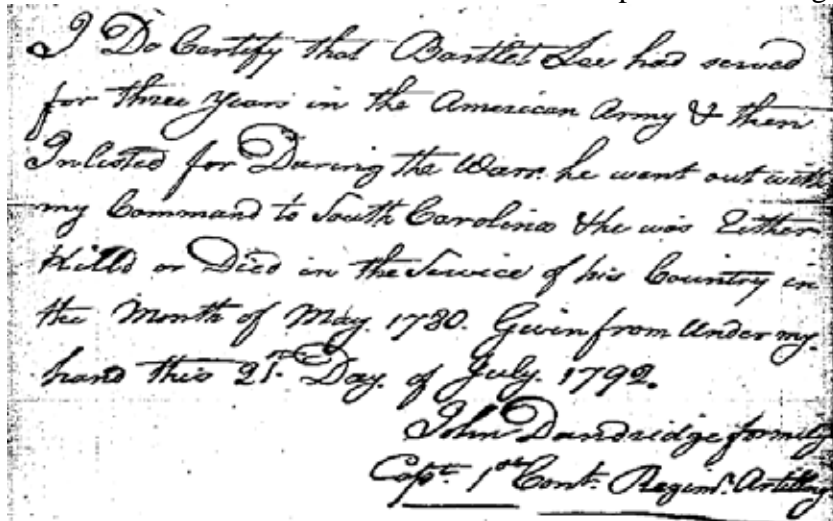 I Do Certify that Bartlet Lee had served
for three Years in the American Army & then
Inlisted for During the Warr. he went out with
my Command to South Carolina & he was Either
Killd or Died in the Service of his Country in
the Month of May. 1780. Given from Under my.
hand this 21st. Day. of July. 1792.
John Dandridge formily
Capt. 1st Cont. Regimt. Artillery